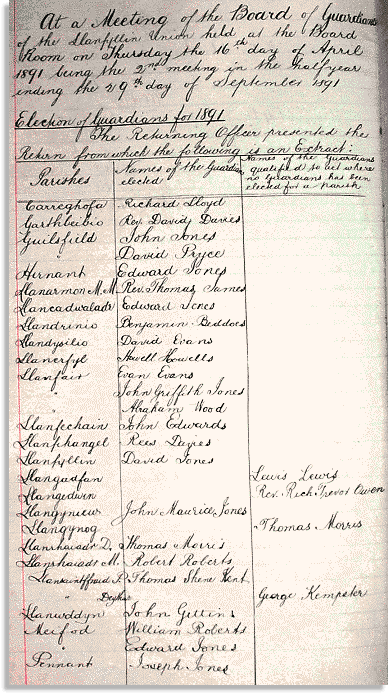 At a Meeting of the Board of Guardians
of the Llanfyllin Union held at the Board
Room on Thursday the 16th day of April
1891 being the 2nd meeting in the Half year
ending the 29th day of September 1891
Election of Guardians for 1891
The Returning Officer presented the
Return from which the following is an Extract:
Parishes Names of the Guardian elected Names of the Guardians qualified to act where no Guardians has been elected for a Parish
Carreghofa Richard Lloyd
Garthbeibio Rev. David Davies
Guilsfield John Jones
" David Pryce
Hirnant Edward Jones
Llanarmon M.M. Rev. Thomas James
Llancadwaladr Edward Jones
Llandrinio Benjamin Beddoes
Llandysilio David Evans
Llanerfyl Howell Howells
Llanfair Evan Evans
" John Griffith Jones
" Abraham Wood
Llanfechain John Edwards
Llanfihangel Rees
Llanfyllin David Jones
Llangadfan Lewis Lewis
Llangedwin Rev. Rich. Trevor Owen
Llangyniew John Maurice Jones
Llangynog Thomas Morris
Llanrhaiadr D. Thomas Morris
Llanrhaiadr M. Robert Roberts
Llansaintffraid P. Thomas Kent
" Deythur George Kempster
Llanwddyn John Gittins
Meifod William Roberts
" Edward Jones
Pennant Joseph Jones